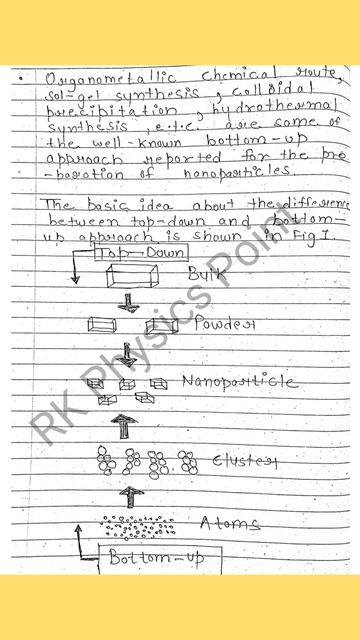 • Organometallic chemical route,
sol-gel synthesis, colloidal
precipitation, hydrothermal
synthesis, e.t.c. are some of
the well-known bottom-up
approach reported for the pre
-paration of nanoparticles.
The basic idea about the difference
between top-down and bottom-
up approach is shown in Fig 1.
Top-Down
Bulk
Powder
Nanoparticle
Cluster
Atoms
Bottom-up
RK Physics Point